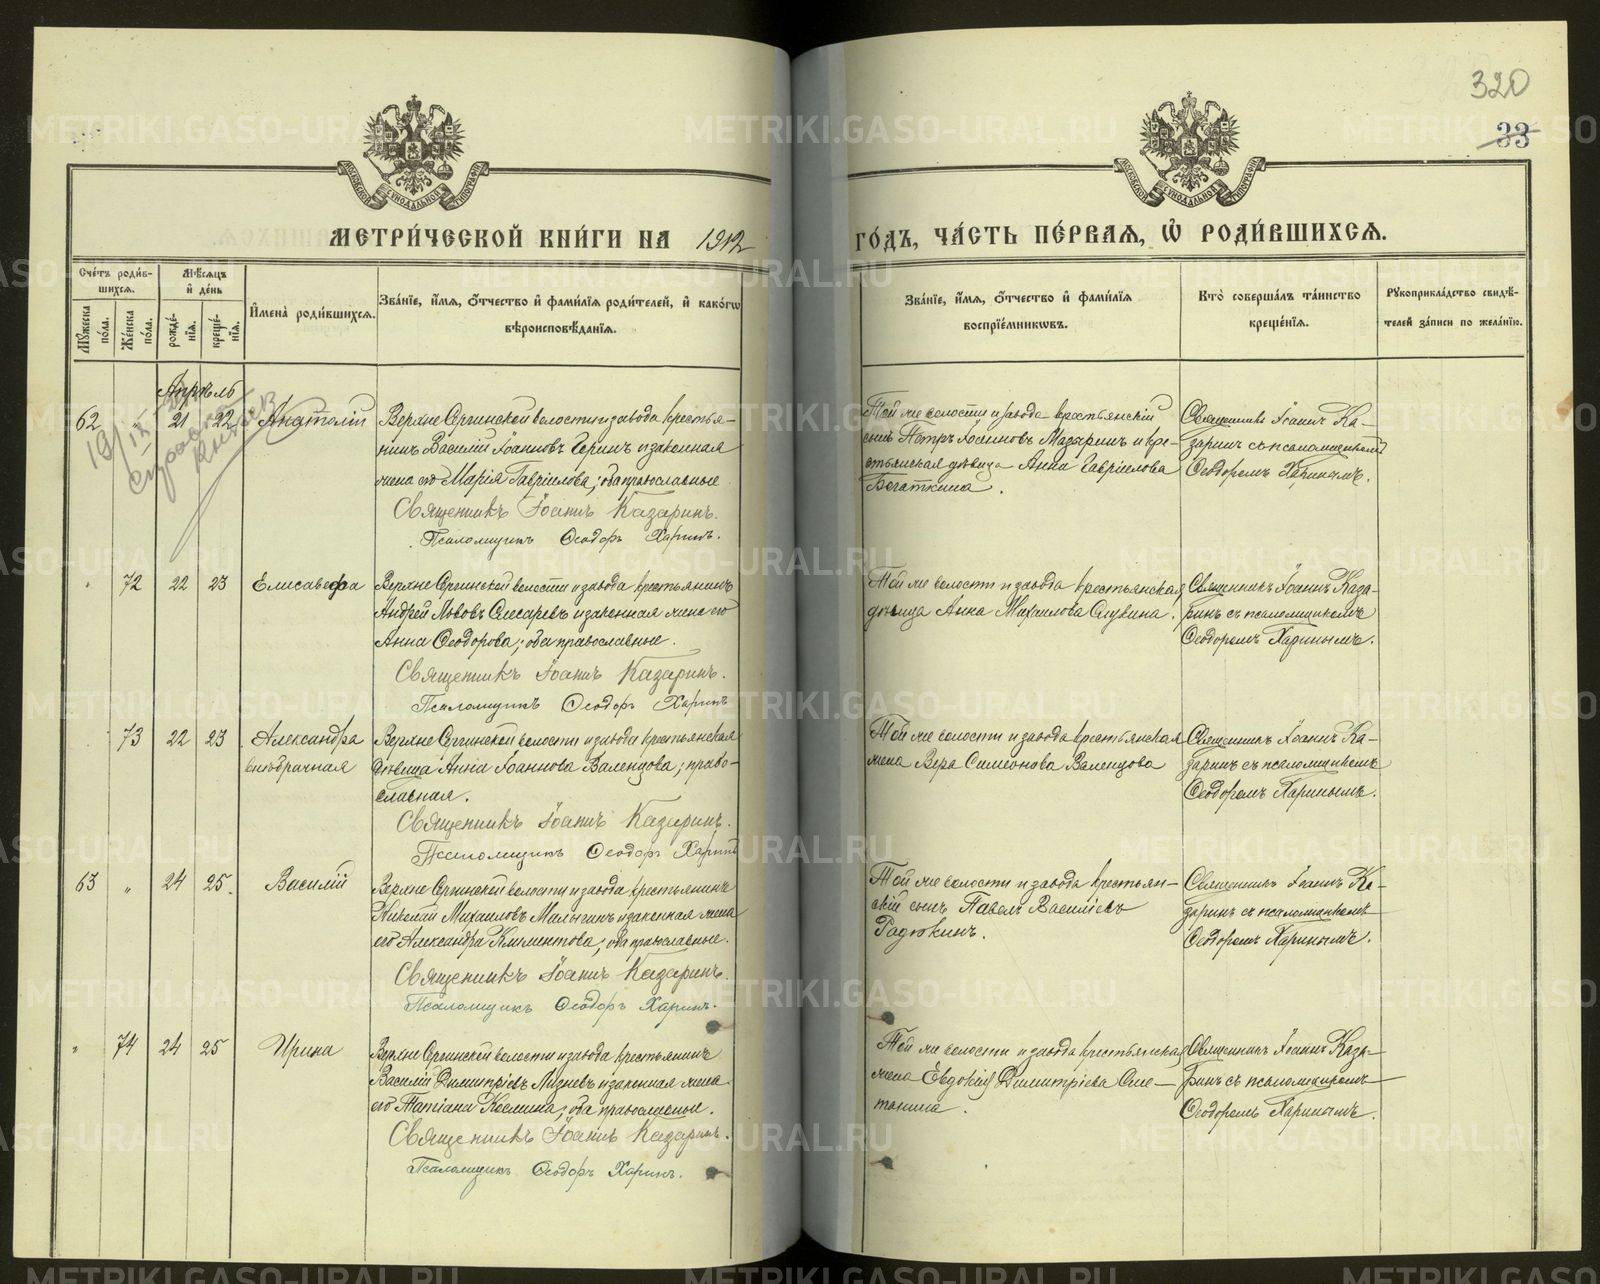 320
33
МОСКОВСКОЙ СѴНОДАЛЬНОЙ ТИПОГРАФІИ
МОСКОВСКОЙ СѴНОДАЛЬНОЙ ТИПОГРАФІИ
МЕТРИ́ЧЕСКОЙ КНИ́ГИ НА 1912 ГО́ДЪ, ЧА́СТЬ ПЕ́РВАЯ, Ѡ҆ РОДИ́ВШИХСЯ.
Сче́тъ роди́в-
шихся.
Мѣ́сяцъ
и҆ де́нь
Мꙋ́жеска по́ла.
Же́нска по́ла.
рожде́-
нїя.
креще́-
нїя.
И҆мена̀ роди́вшихся.
Зва́нїе, и҆́мя, ѻ҆́тчество и҆ фами́лїя роди́телей, и҆ како́гѡ
вѣроисповѣ́данїя.
Зва́нїе, и҆́мя, ѻ҆́тчество и҆ фами́лїя
воспрїе́мникѡвъ.
Кто̀ соверша́лъ та́инство
креще́нїя.
Рꙋкоприкла́дство свидѣ́-
телей за́писи по жела́нїю.
Апрѣль
62 „ 21 22 Анатолій
Верхне Сергинской волости и завода крестья-
нинъ Василій Іоанновъ и законная
жена его Марія Гавріилова; оба православные
Священникъ Іоаннъ Казаринъ.
Псаломщикъ Ѳеодоръ Харинъ.
Той же волости и завода крестьянскій
сынъ Петръ Мазаринъ и кре-
стьянская дѣвица Анна Гавріилова
Богаткина.
Священникъ Іоаннъ Ка-
заринъ съ псаломщикомъ
Ѳеодоромъ Харинымъ.
„ 72 22 23 Елисавефа
Верхне Сергинской волости и завода крестьянинъ
Андрей Львовъ Слесаревъ и законная жена его
Анна Ѳеодорова; оба православные.
Священникъ Іоаннъ Казаринъ.
Псаломщикъ Ѳеодоръ Харинъ
Той же волости и завода крестьянская
дѣвица Анна Михаилова
Священникъ Іоаннъ Каза-
ринъ съ псаломщикомъ
Ѳеодоромъ Харинымъ.
73 22 23 Александра
внѣбрачная
Верхне Сергинской волости и завода крестьянская
дѣвица Анна Іоаннова Валенцова; право-
славная.
Священникъ Іоаннъ Казаринъ.
Псаломщикъ Ѳеодоръ Харинъ
Той же волости и завода крестьянская
жена Вера Симеонова Валенцова
Священникъ Іоаннъ Ка-
заринъ съ псаломщикомъ
Ѳеодоромъ Харинымъ.
63 „ 24 25. Василій
Верхне Сергинской волости и завода крестьянинъ
Николай Михаиловъ Малыгинъ и законная жена
его Александра Климентова; оба православные.
Священникъ Іоаннъ Казаринъ.
Псаломщикъ Ѳеодоръ Харинъ.
Той же волости и завода крестьян-
скій сынъ Павелъ Василіевъ
Священникъ Іоаннъ Ка-
заринъ съ псаломщикомъ
Ѳеодоромъ Харинымъ.
„ 74 24 25 Ирина
Верхне Сергинской волости и завода крестьянинъ
Василій Димитріевъ и законная жена
его Татіана Космина; оба православные.
Священникъ Іоаннъ Казаринъ.
Псаломщикъ Ѳеодоръ Харинъ.
Той же волости и завода крестьянская
жена Евдокія Димитріева Сме-
танина.
Священникъ Іоаннъ Каза-
ринъ съ псаломщикомъ
Ѳеодоромъ Харинымъ.
METRIKI.GASO-URAL.RU